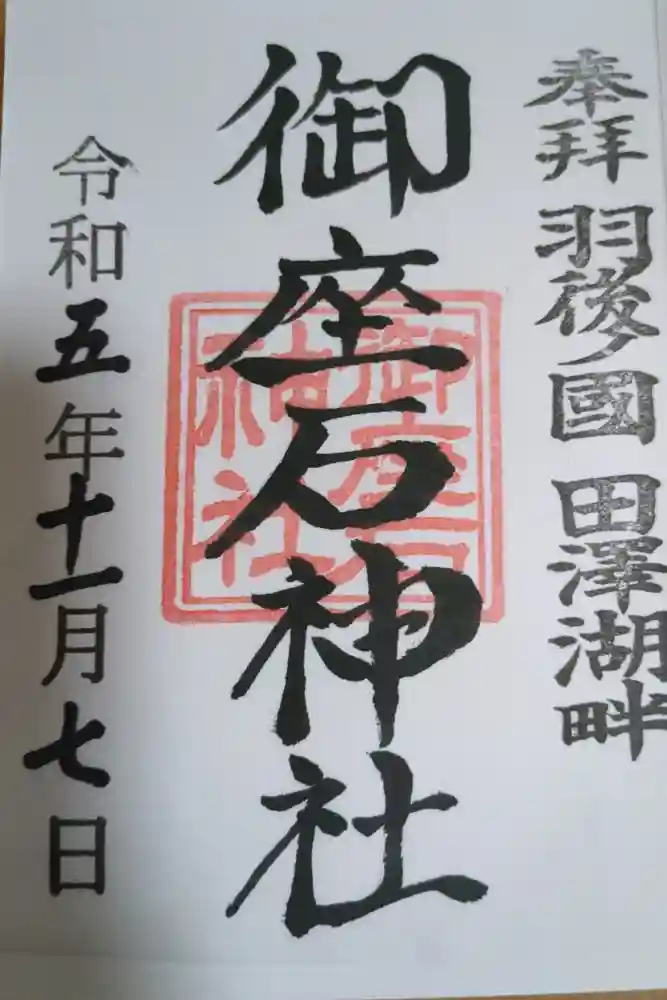 奉拝 羽後ノ國 田澤湖畔
御座石神社
御座石
神社
令和五年十一月七日